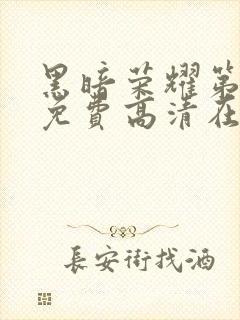 黑暗荣耀第
免費高清在
長安街找酒